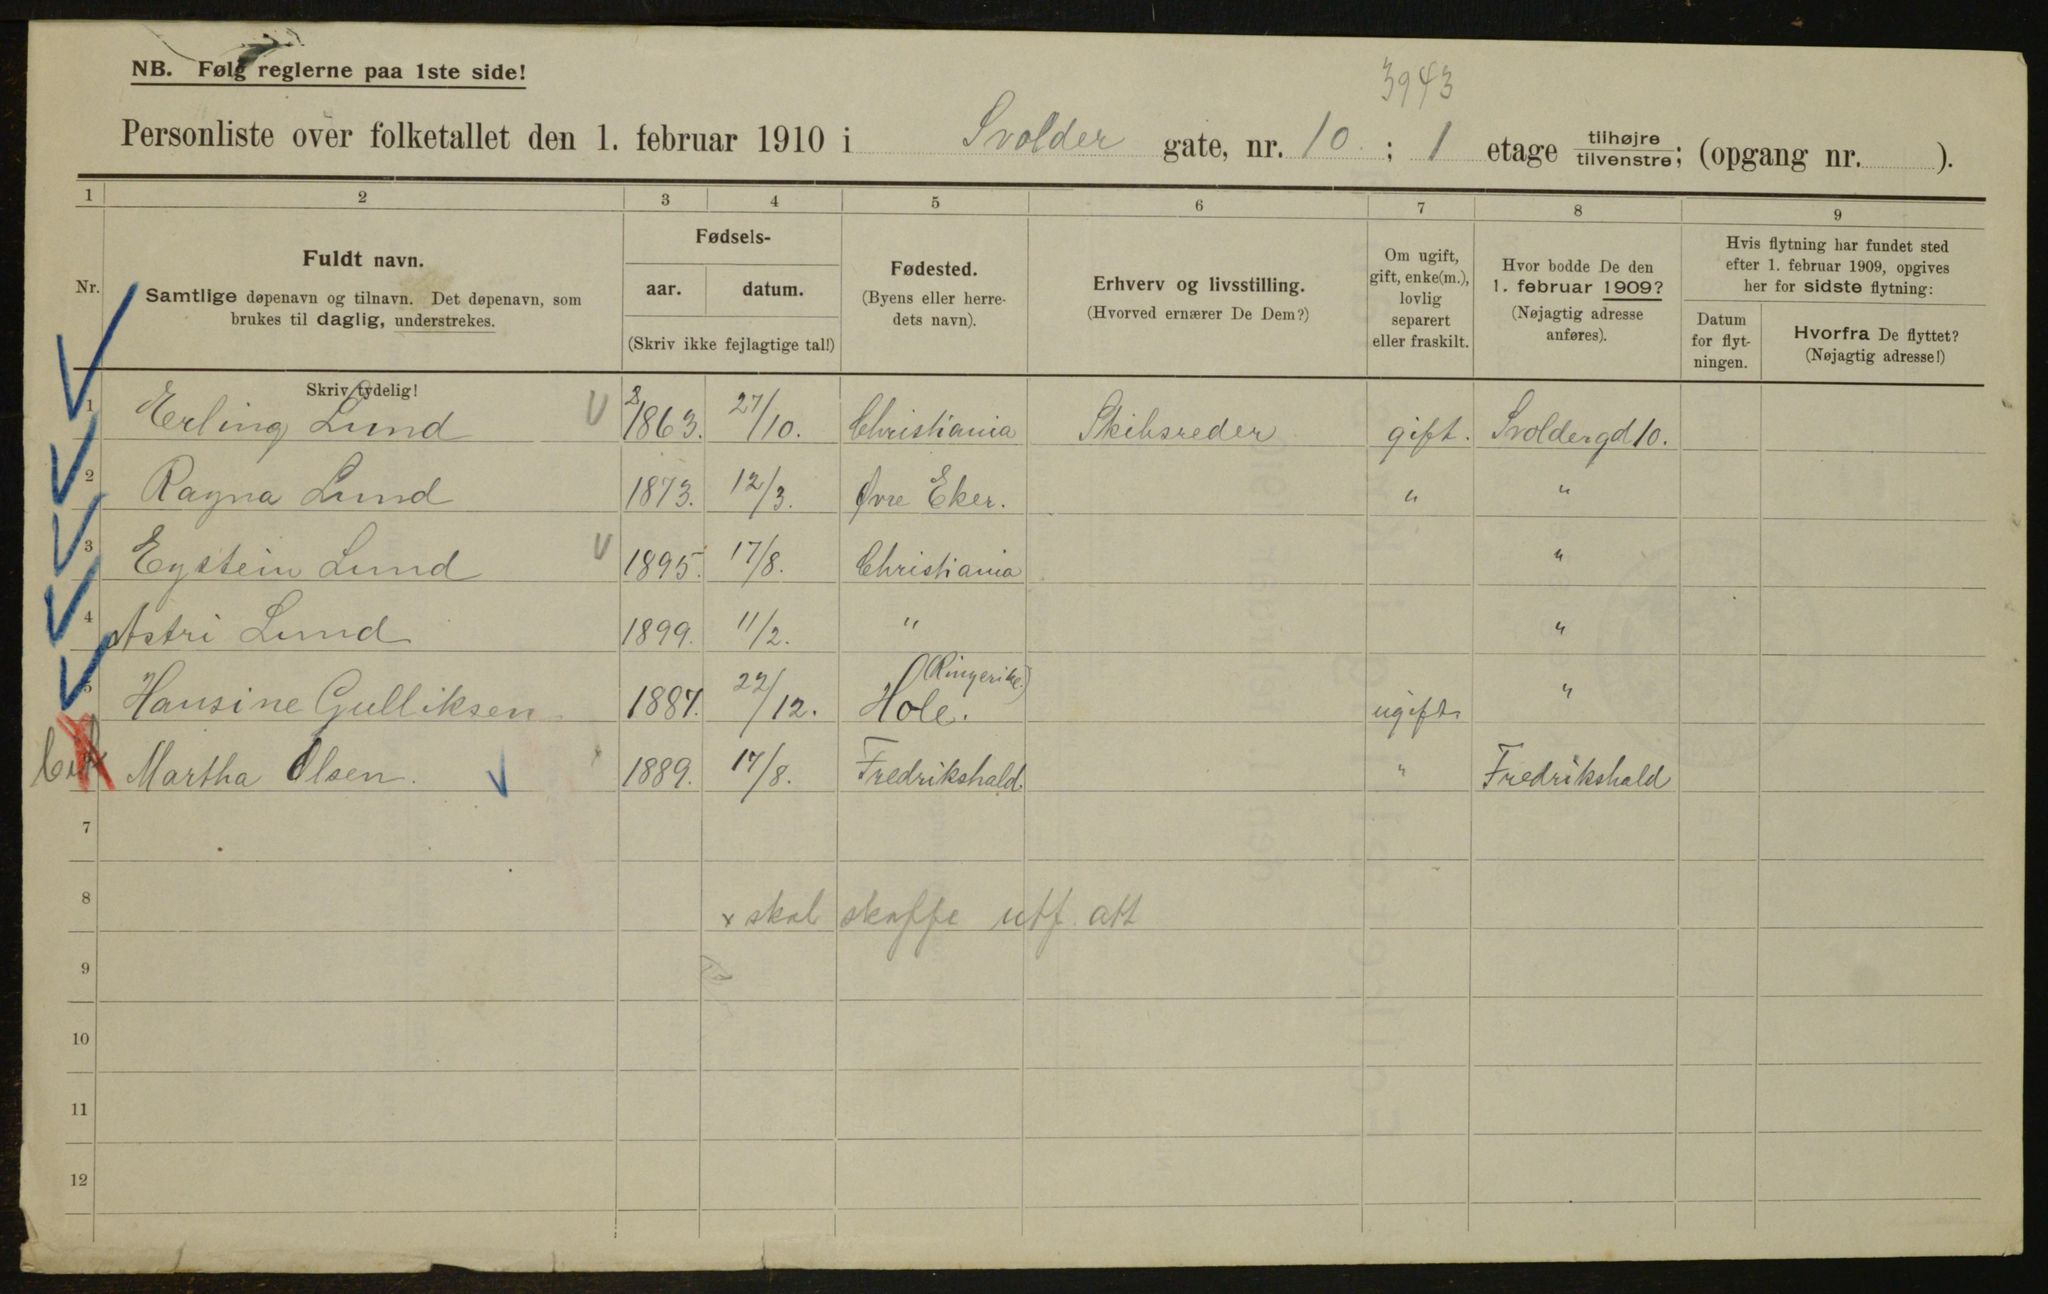 3943
NB. Følg reglerne paa 1ste side!
Personliste over folketallet den 1. februar 1910 i Svolder gate, nr. 10 ; 1 etage tilhøjre tilvenstre; (opgang nr. ).
1 2 3 4 5 6 7 8 9
Nr.
Fuldt navn.
Samtlige døpenavn og tilnavn. Det døpenavn, som
brukes til daglig, understrekes.
Skriv tydelig!
Fødsels-
aar. datum.
(Skriv ikke fejlagtige tal!)
Fødested.
(Byens eller herre-
dets navn).
Erhverv og livsstilling.
(Hvorved ernærer De Dem?)
Om ugift,
gift, enke(m.),
lovlig
separert
eller fraskilt.
Hvor bodde De den
1. februar 1909?
(Nøjagtig adresse
anføres).
Hvis flytning har fundet sted
efter 1. februar 1909, opgives
her for sidste flytning:
Datum
for flyt-
ningen.
Hvorfra De flyttet?
(Nøjagtig adresse!)
1 Erling Lund 2 1863. 27/10. Christiania Skibsreder gift. Svoldergd 10.
2 Ragna Lund 1873. 12/3. Øvre Eker. " "
3 Eystein Lund 1895. 17/8. Christiania "
4 Astri Lund 1899. 11/2. " "
5 Hansine Gulliksen 1887. 22/12. Hole. (Ringerike.) ugift. "
Martha Olsen. 1889. 17/8. Fredrikshald. " Fredrikshald
7
8 x skal skaffe utf. att
9
10
11
12